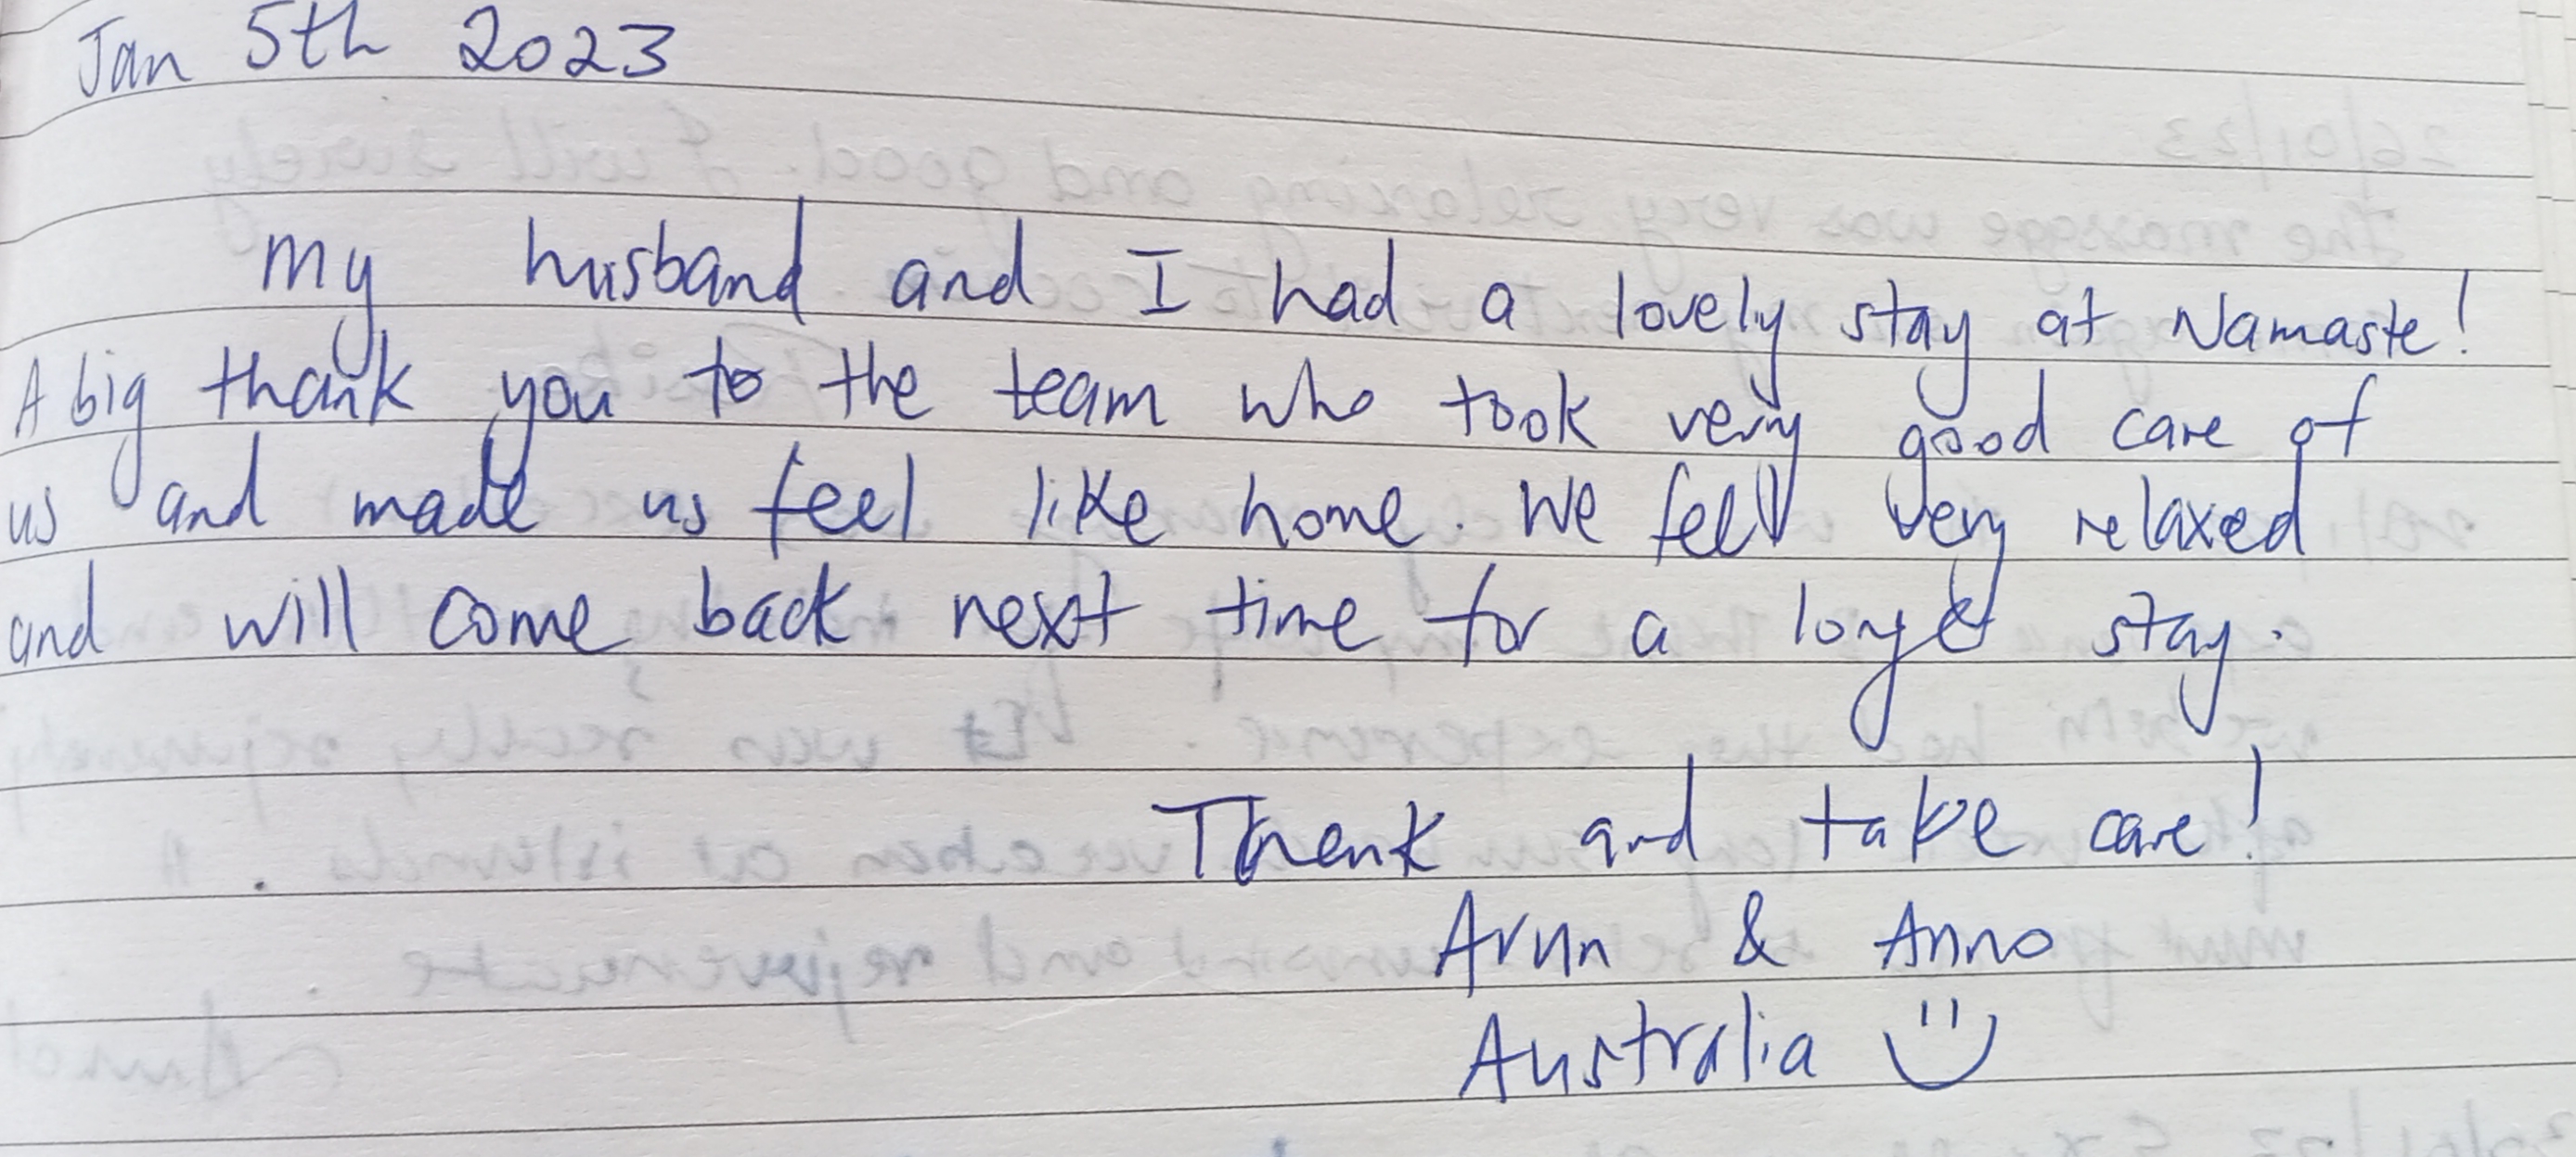 Jan 5th 2023
My husband and I had a lovely stay at Namaste!
A big thank you to the team who took very good care of
us and made us feel like home. We felt very relaxed
and will come back next time for a longer stay.
Thank and take care!
Arun & Anno
Australia